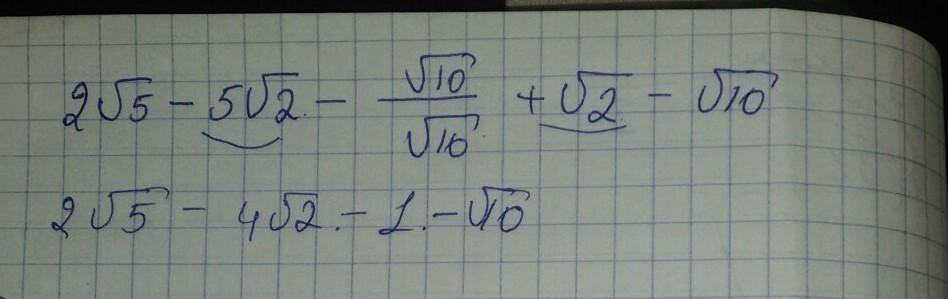 2√5 − 5√2 − √10/√10 + √2 − √10
2√5 − 4√2 − 1 − √10